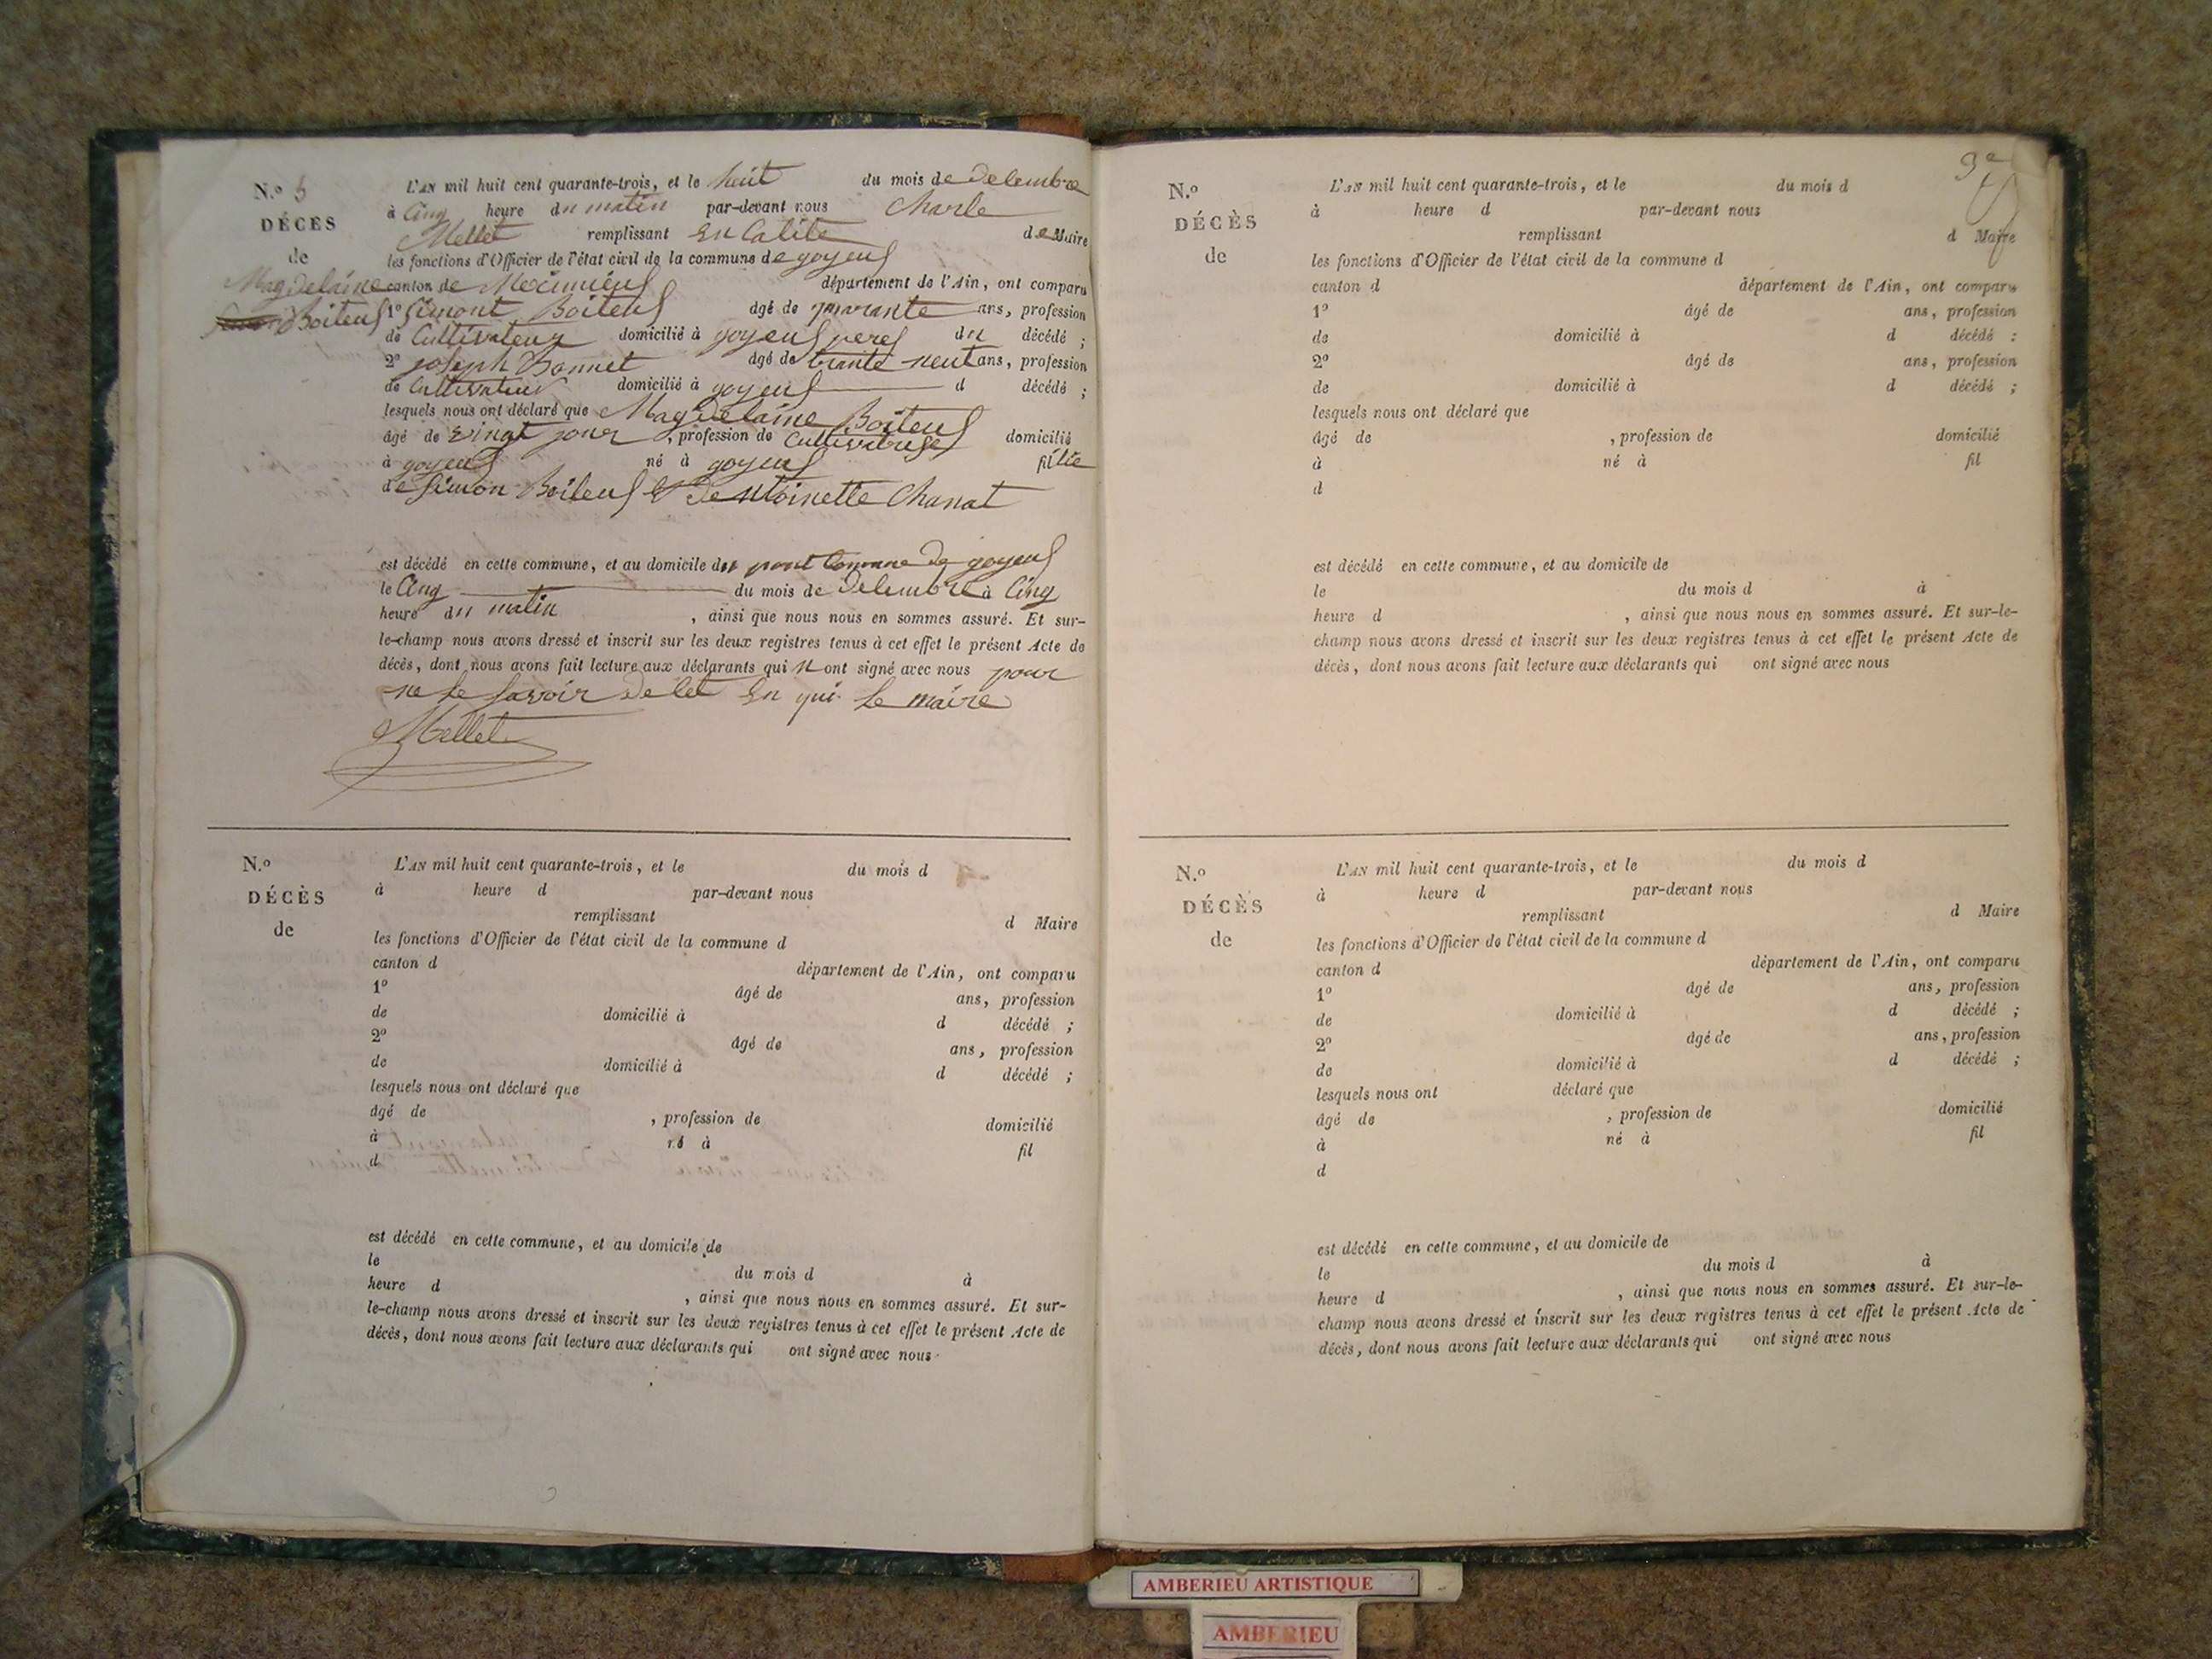 N.º 5
DÉCES
de
Magdelaine
Boiteus
L'AN mil huit cent quarante-trois, et le heut du mois de delembre
à Cinq heure du matin par-devant nous Charle
Mellet remplissant en Calité de Maire
les fonctions d'Officier de l'état civil de la commune de goyeus
canton de Meximieus département de l'Ain, ont comparu
1º Simont Boiteus âgé de quarante ans, profession
de Cultivateur domicilié à goyeus peres du décédé ;
2º joseph Bonnet âgé de trante neuf ans, profession
de Cultivateur domicilié à goyeus d décédé ;
lesquels nous ont déclaré que Magdelaine Boiteus
âgé de vingt jour, profession de Cultivatrise domicilié
à goyeus né à goyeus fillie
de Simon Boiteus & de ntoinette Chanat
est décédé en cette commune, et au domicile de goyeus
le Cinq du mois de delembre à Cinq
heure du matin, ainsi que nous nous en sommes assuré. Et sur-
le-champ nous avons dressé et inscrit sur les deux registres tenus à cet effet le présent Acte de
décès, dont nous avons fait lecture aux déclarants qui n ont signé avec nous pour
ne le savoir de let en qui le maire
Mellet
N.º
DÉCÈS
de
L'AN mil huit cent quarante-trois, et le du mois d
à heure d par-devant nous
remplissant d Maire
les fonctions d'Officier de l'état civil de la commune d
canton d département de l'Ain, ont comparu
1º âgé de ans, profession
de domicilié à d décédé ;
2º âgé de ans, profession
de domicilié à d décédé ;
lesquels nous ont déclaré que
âgé de , profession de domicilié
à né à fil
d
est décédé en cette commune, et au domicile de
le du mois d à
heure d , ainsi que nous nous en sommes assuré. Et sur-
le-champ nous avons dressé et inscrit sur les deux registres tenus à cet effet le présent Acte de
décès, dont nous avons fait lecture aux déclarants qui ont signé avec nous
N.º
DÉCÈS
de
L'AN mil huit cent quarante-trois, et le du mois d
à heure d par-devant nous
remplissant d Maire
les fonctions d'Officier de l'état civil de la commune d
canton d département de l'Ain, ont comparu
1º âgé de ans, profession
de domicilié à d décédé :
2º âgé de ans, profession
de domicilié à d décédé ;
lesquels nous ont déclaré que
âgé de , profession de domicilié
à né à fil
d
est décédé en cette commune, et au domicile de
le du mois d à
heure d , ainsi que nous nous en sommes assuré. Et sur-le-
champ nous avons dressé et inscrit sur les deux registres tenus à cet effet le présent Acte de
décès, dont nous avons fait lecture aux déclarants qui ont signé avec nous
N.º
DÉCÈS
de
L'AN mil huit cent quarante-trois, et le du mois d
à heure d par-devant nous
remplissant d Maire
les fonctions d'Officier de l'état civil de la commune d
canton d département de l'Ain, ont comparu
1º âgé de ans, profession
de domicilié à d décédé ;
2º âgé de ans, profession
de domicilié à d décédé ;
lesquels nous ont déclaré que
âgé de , profession de domicilié
à né à fil
d
est décédé en cette commune, et au domicile de
le du mois d à
heure d , ainsi que nous nous en sommes assuré. Et sur-le-
champ nous avons dressé et inscrit sur les deux registres tenus à cet effet le présent Acte de
décès, dont nous avons fait lecture aux déclarants qui ont signé avec nous
AMBERIEU ARTISTIQUE
AMBERIEU